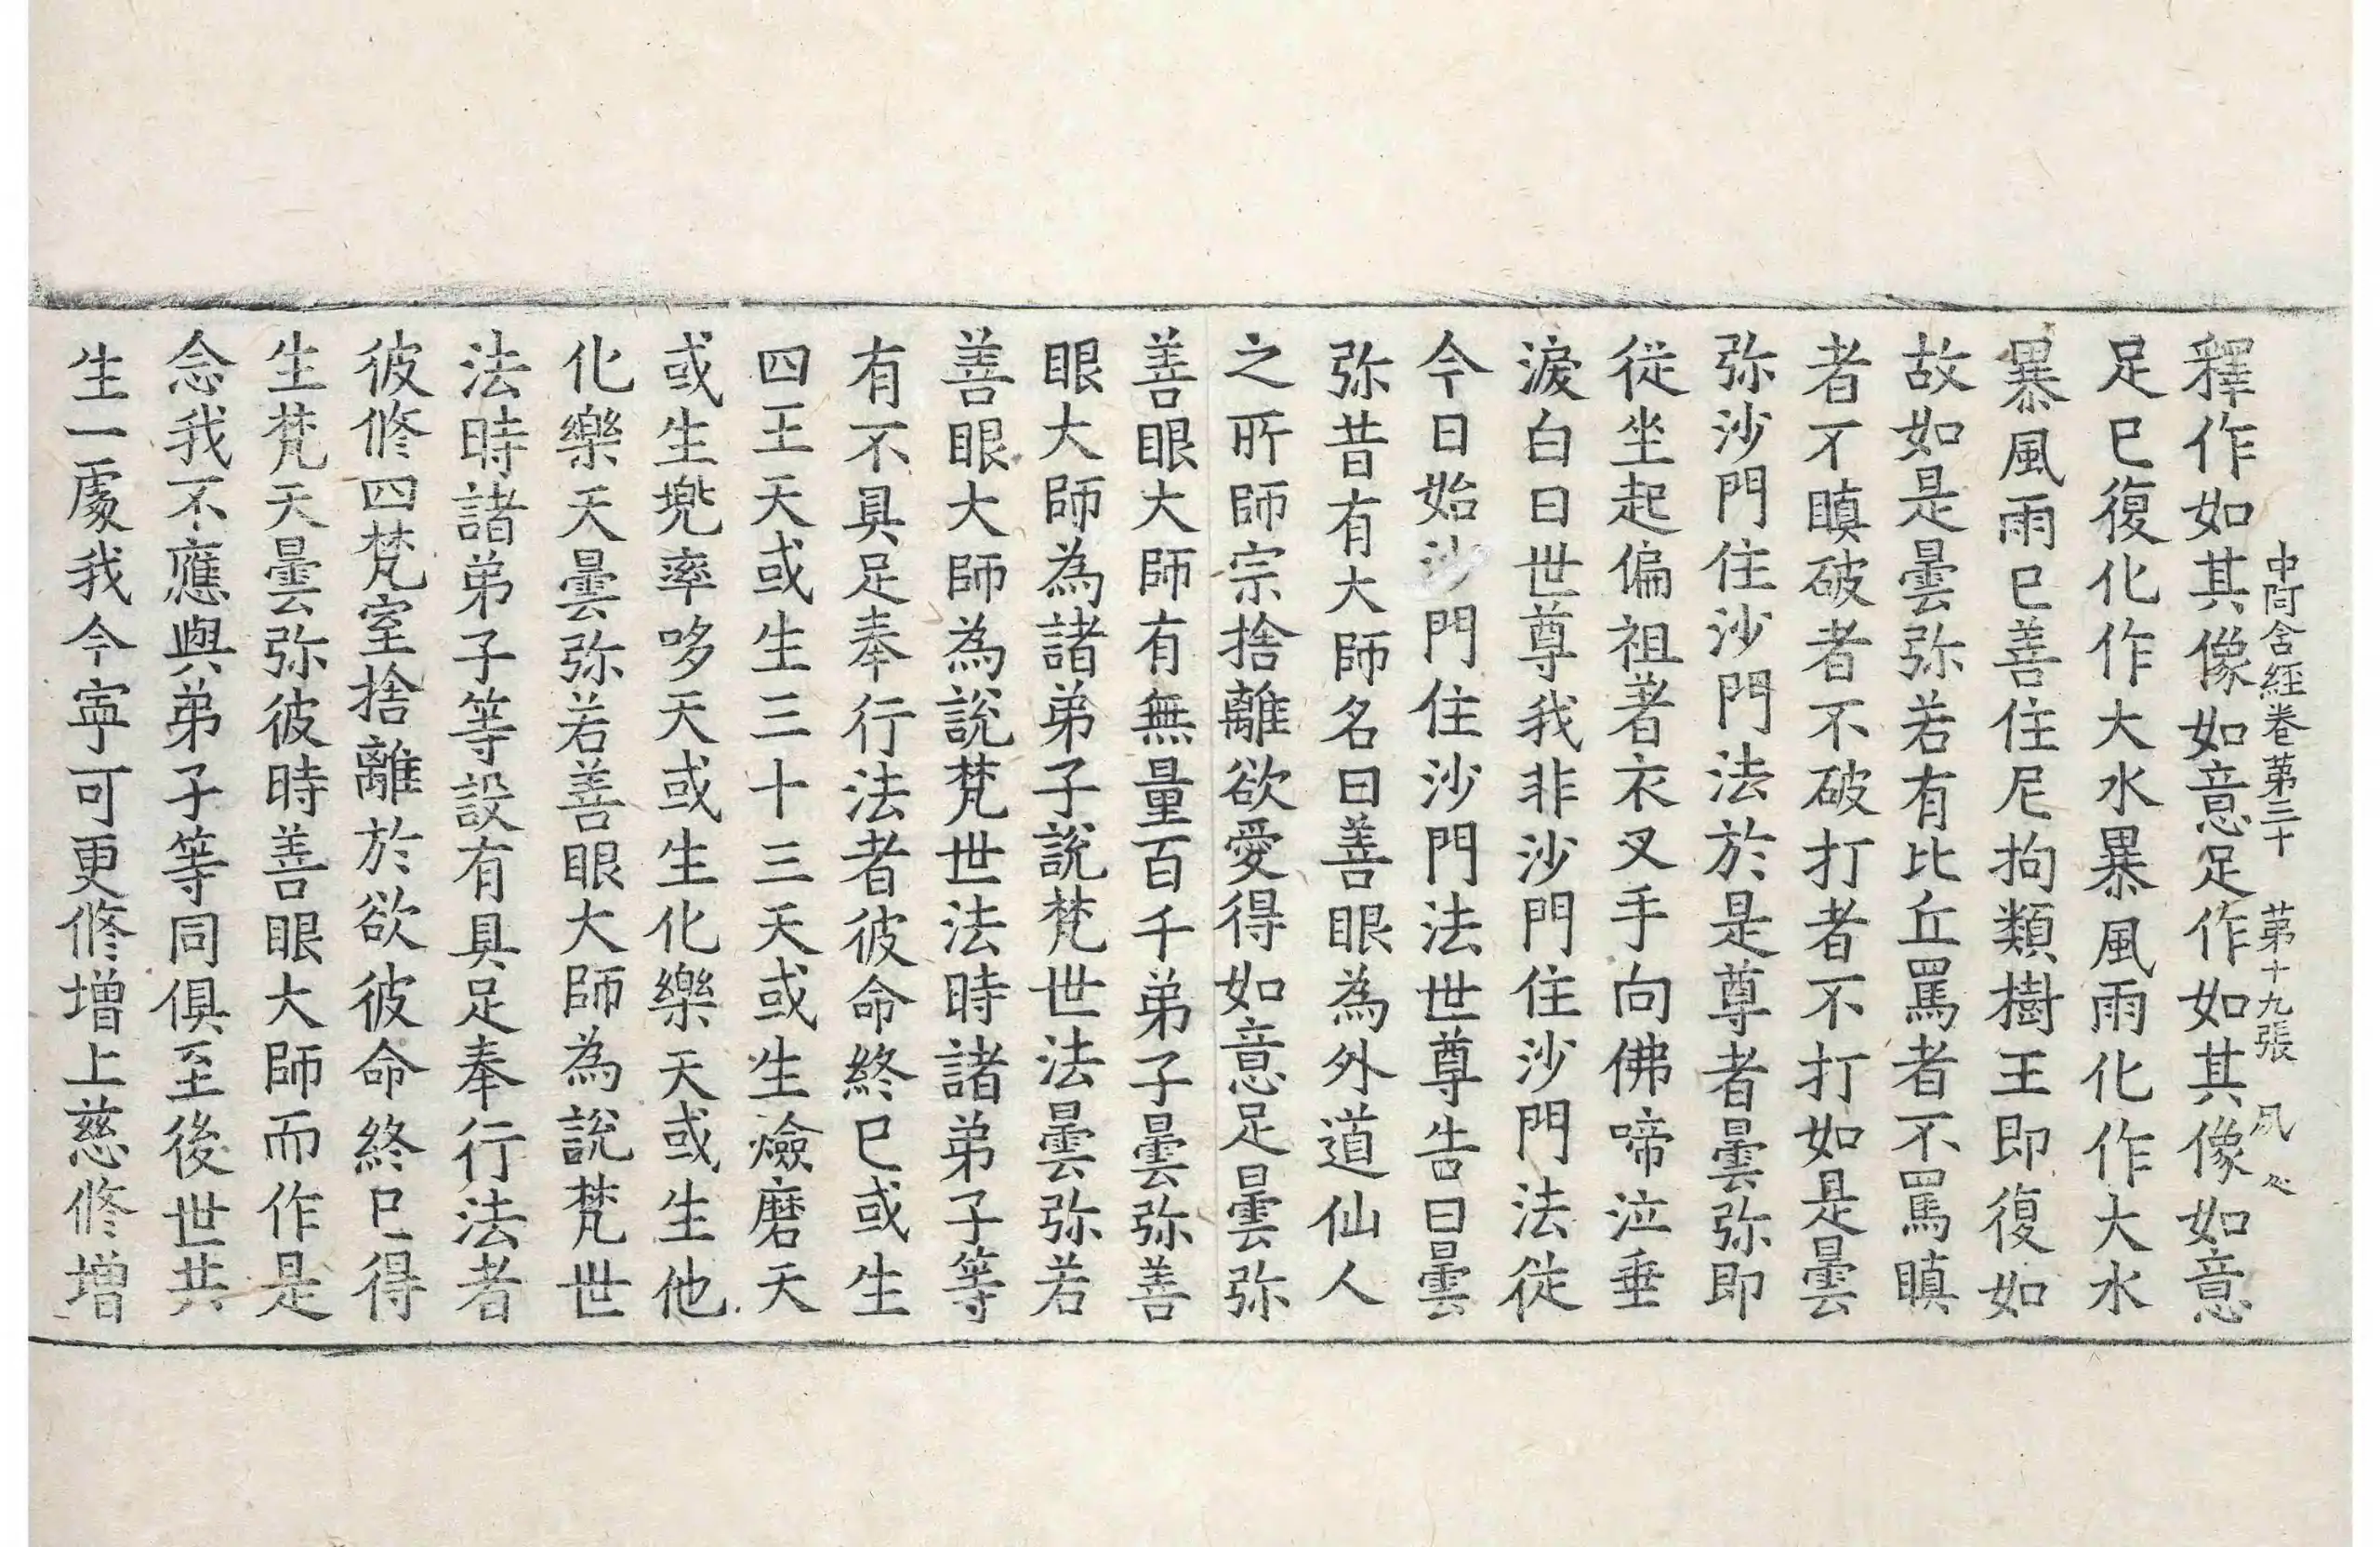 中阿含經卷第三十　第十九張　夙
釋作如其像如意足作如其像如意
足已復化作大水暴風雨化作大水
暴風雨已善住尼拘類樹王即復如
故如是曇弥若有比丘罵者不罵瞋
者不瞋破者不破打者不打如是曇
弥沙門住沙門法於是尊者曇弥即
從坐起偏袒著衣叉手向佛啼泣垂
淚白曰世尊我非沙門住沙門法從
今日始沙門住沙門法世尊告曰曇
弥昔有大師名曰善眼為外道仙人
之所師宗捨離欲愛得如意足曇弥
善眼大師有無量百千弟子曇弥善
眼大師為諸弟子說梵世法曇弥若
善眼大師為說梵世法時諸弟子等
有不具足奉行法者彼命終已或生
四王天或生三十三天或生焰磨天
或生兠率哆天或生化樂天或生他
化樂天曇弥若善眼大師為說梵世
法時諸弟子等設有具足奉行法者
彼修四梵室捨離於欲彼命終已得
生梵天曇弥彼時善眼大師而作是
念我不應與弟子等同俱至後世共
生一處我今寧可更修增上慈修增